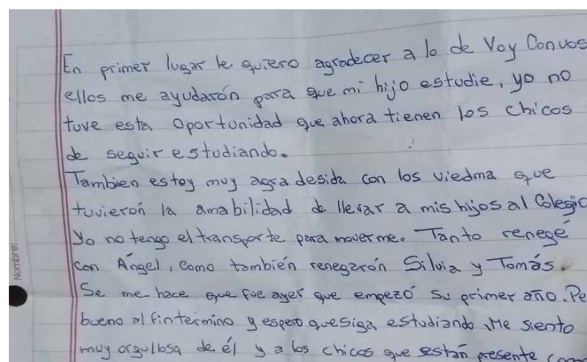 En primer lugar le quiero agradecer a lo de Voy Convos
ellos me ayudarón para que mi hijo estudie, yo no
tuve esta oportunidad que ahora tienen los chicos
de seguir estudiando.
Tambien estoy muy agradesida con los viedma que
tuvierón la amabilidad de llevar a mis hijos al Colegio
Yo no tengo el transporte para moverme. Tanto renegé
con Ángel, como también renegarón Silvia y Tomás.
Se me hace que fue ayer que empezó su primer año. Pe
bueno al fin termino y espero que siga estudiando. Me siento
muy orgullosa de él y a los chicos que sestán presente
Nombre: